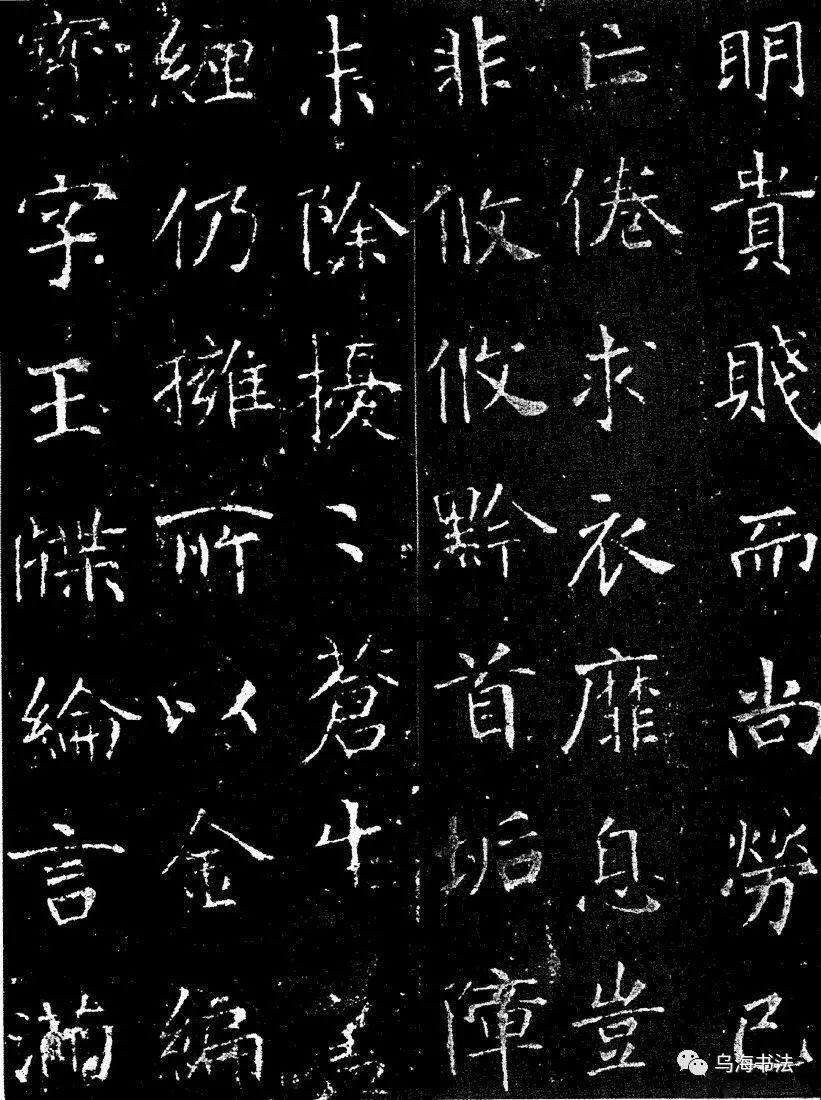 明貴賤而尚勞已
亡倦求衣靡息豈
非攸攸黔首垢障
未除擾〻蒼生蓋
纏仍擁所以金編
寶字玉牒綸言滿
乌海书法